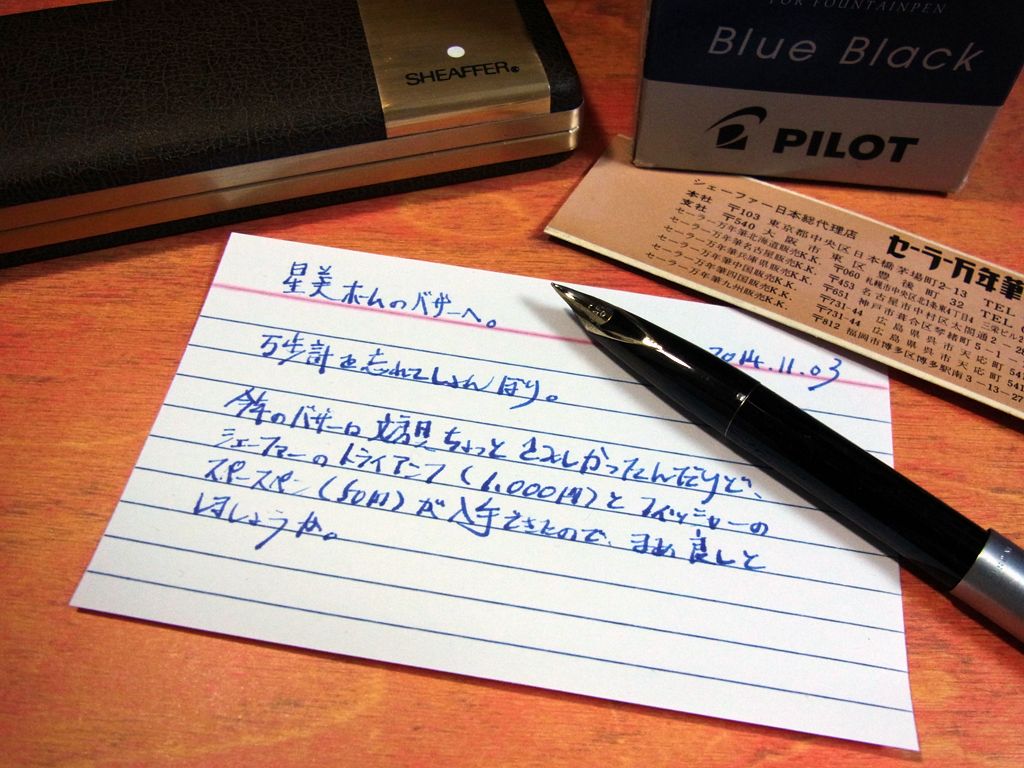 SHEAFFER®
FOR FOUNTAINPEN
Blue Black
PILOT
シェーファー日本総代理店
セーラー万年筆
本社 〒103 東京都中央区日本橋茅場町2-13 TEL
支社 〒540 大阪市東区豊後町32 TEL
セーラー万年筆北海道販売K.K. 〒060 札幌市中央区北1条
セーラー万年筆名古屋販売K.K. 〒453 名古屋市中村区太閤通2
セーラー万年筆兵庫販売K.K. 〒651 神戸市葺合区琴緒町5-1
セーラー万年筆中国販売K.K. 〒731-44 広島県呉市天応町541
セーラー万年筆四国販売K.K. 〒731-44 広島県呉市天応町541
セーラー万年筆九州販売K.K. 〒812 福岡市博多区博多駅南3-13-27
星美ホームのバザーへ。
2014.11.03
万歩計を忘れてしょんぼり。
今年のバザーは文房具ちょっとさみしかったんだけど、
シェーファーのトライアンフ(1,000円)とフィッシャーの
スペースペン(50円)が入手できたので、まあ良しと
しましょうか。